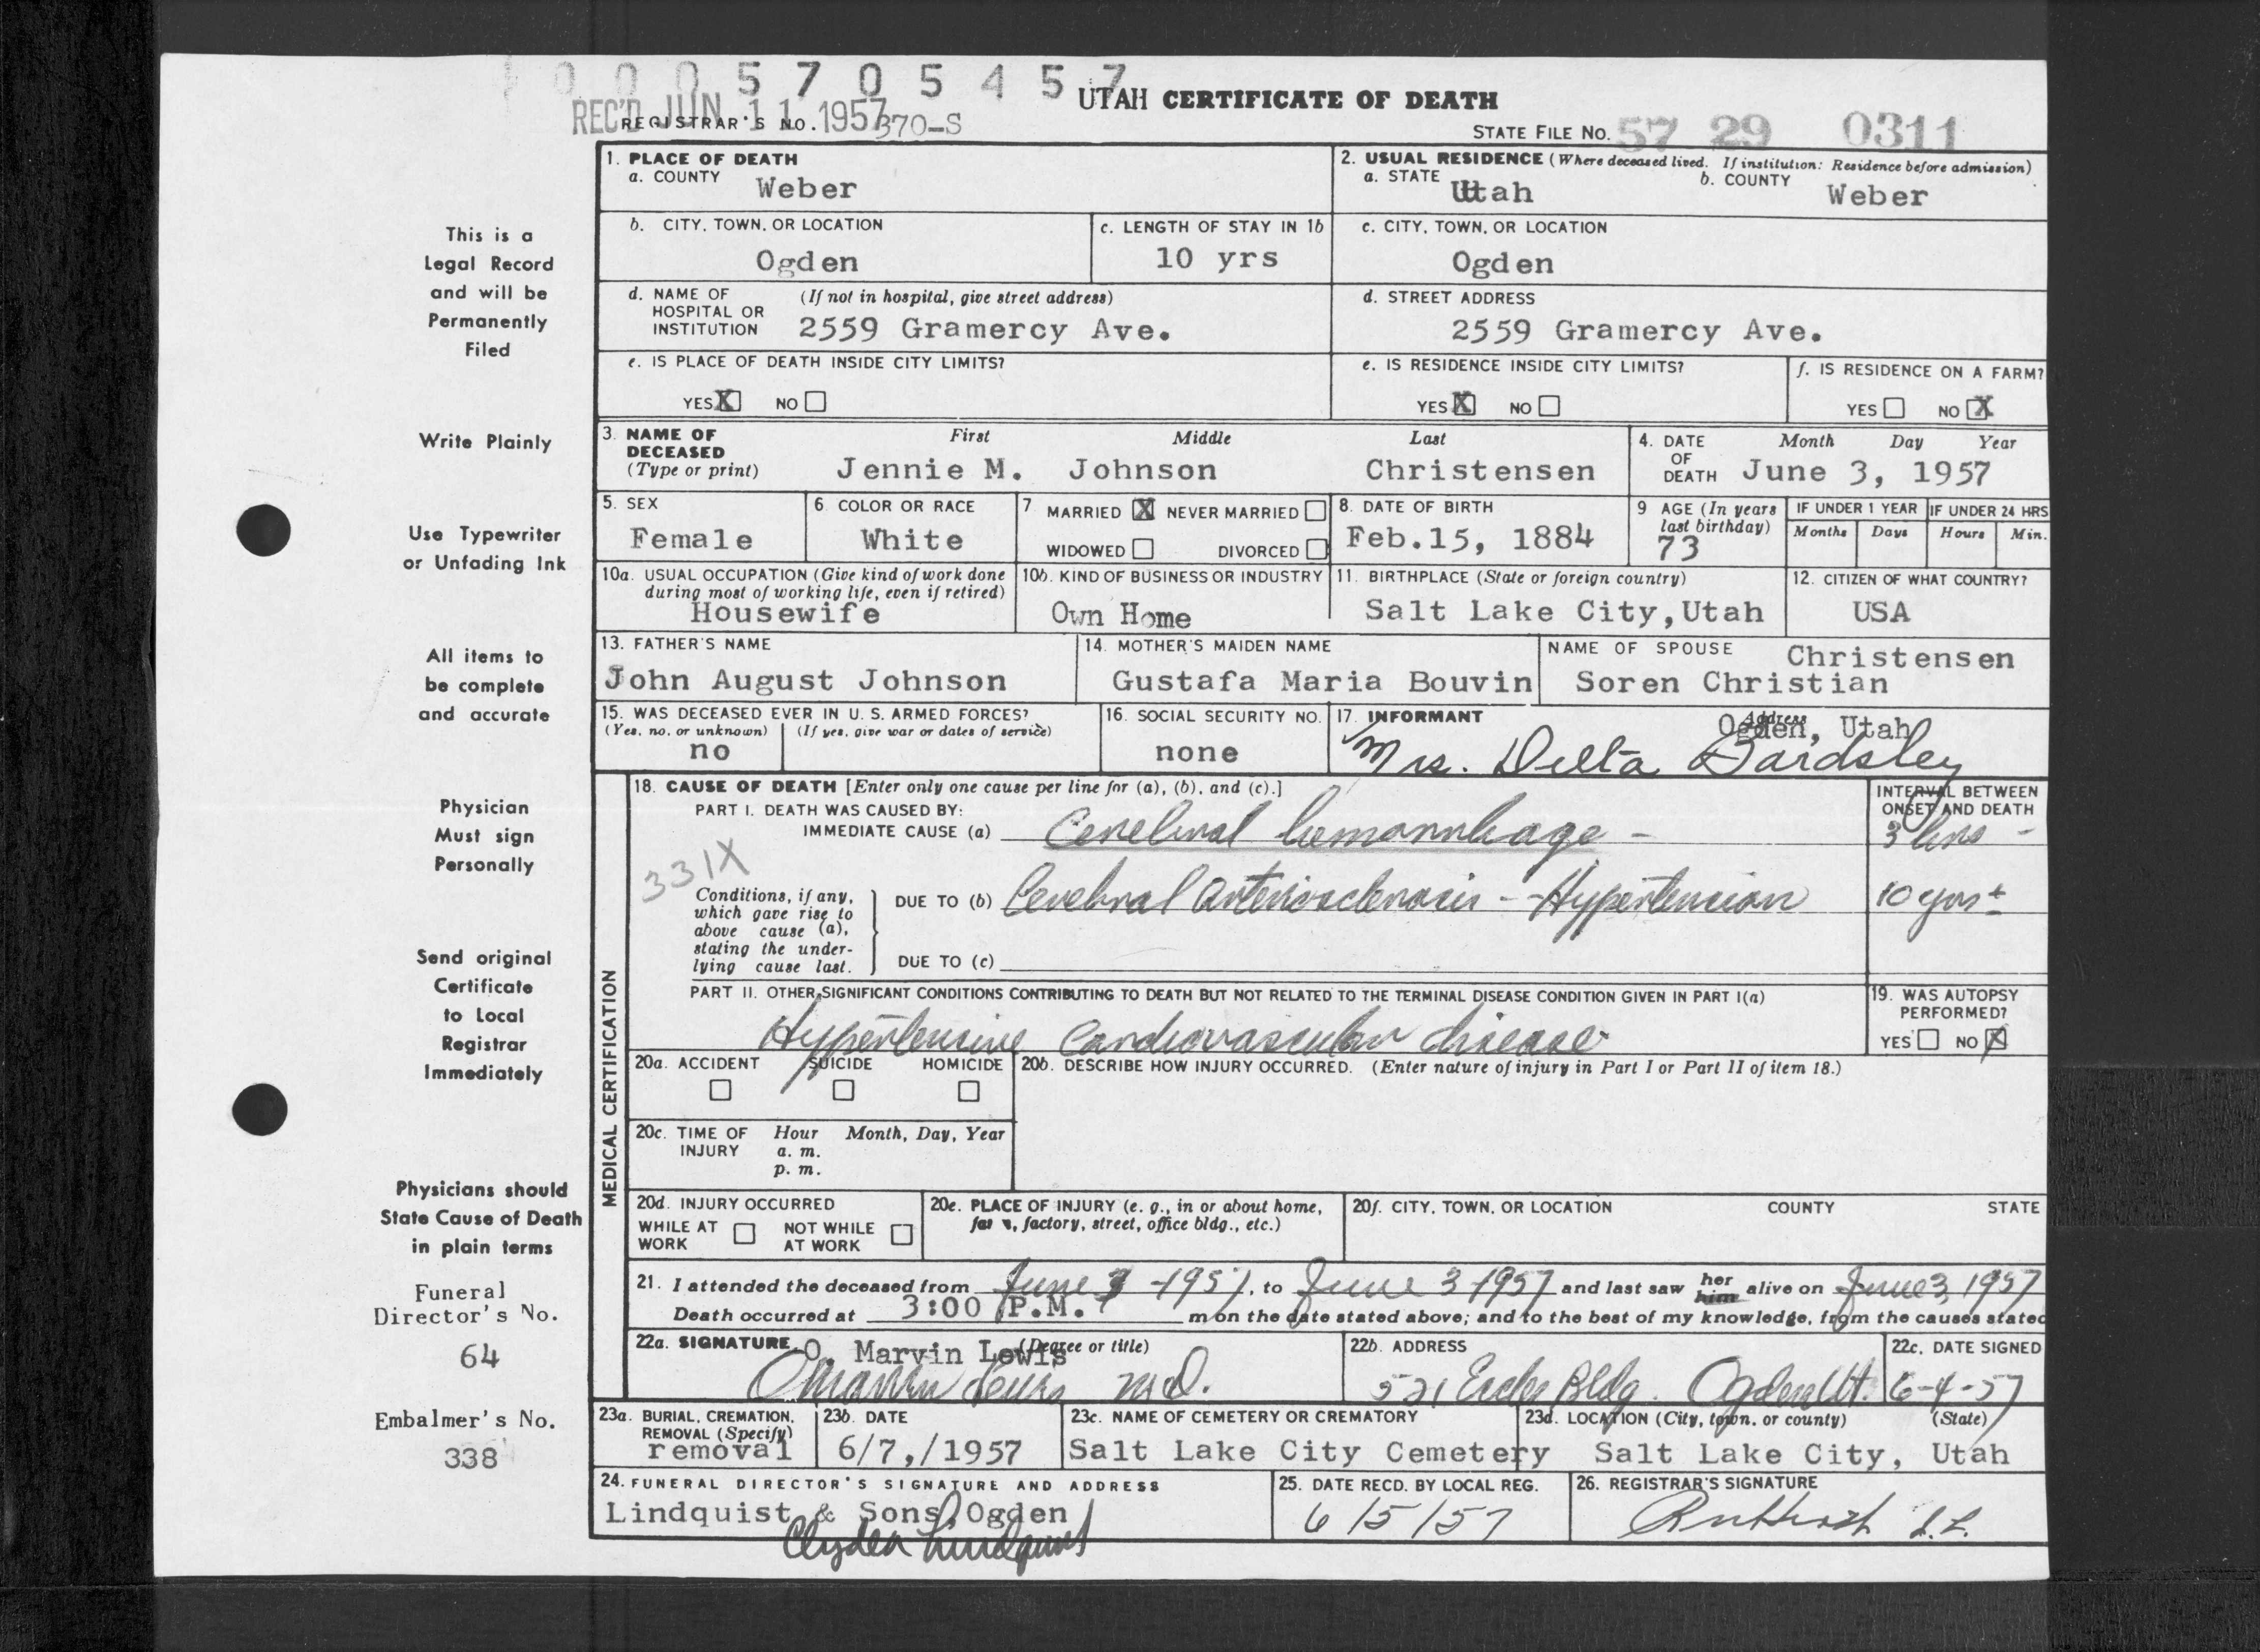 0 0 0 5 7 0 5 4 5 7
UTAH CERTIFICATE OF DEATH
REC'D JUN 11 1957
REGISTRAR'S NO. 370-S
STATE FILE NO. 57 29 0311
1. PLACE OF DEATH
a. COUNTY Weber
2. USUAL RESIDENCE (Where deceased lived. If institution: Residence before admission)
a. STATE Utah b. COUNTY Weber
b. CITY, TOWN, OR LOCATION
Ogden
c. LENGTH OF STAY IN 1b
10 yrs
c. CITY, TOWN, OR LOCATION
Ogden
d. NAME OF HOSPITAL OR INSTITUTION (If not in hospital, give street address)
2559 Gramercy Ave.
d. STREET ADDRESS
2559 Gramercy Ave.
e. IS PLACE OF DEATH INSIDE CITY LIMITS?
YES X NO
e. IS RESIDENCE INSIDE CITY LIMITS?
YES X NO
f. IS RESIDENCE ON A FARM?
YES NO X
3. NAME OF DECEASED (Type or print)
First Middle Last
Jennie M. Johnson Christensen
4. DATE OF DEATH Month Day Year
June 3, 1957
5. SEX
Female
6 COLOR OR RACE
White
7 MARRIED X NEVER MARRIED
WIDOWED DIVORCED
8. DATE OF BIRTH
Feb.15, 1884
9 AGE (In years last birthday)
73
IF UNDER 1 YEAR
Months Days
IF UNDER 24 HRS
Hours Min.
10a. USUAL OCCUPATION (Give kind of work done during most of working life, even if retired)
Housewife
10b. KIND OF BUSINESS OR INDUSTRY
Own Home
11. BIRTHPLACE (State or foreign country)
Salt Lake City,Utah
12. CITIZEN OF WHAT COUNTRY?
USA
13. FATHER'S NAME
John August Johnson
14. MOTHER'S MAIDEN NAME
Gustafa Maria Bouvin
NAME OF SPOUSE Christensen
Soren Christian
15. WAS DECEASED EVER IN U. S. ARMED FORCES?
(Yes, no, or unknown) (If yes, give war or dates of service)
no
16. SOCIAL SECURITY NO.
none
17. INFORMANT Address
Ogden, Utah
Mrs. Delta Bardsley
MEDICAL CERTIFICATION
18. CAUSE OF DEATH [Enter only one cause per line for (a), (b), and (c).]
PART I. DEATH WAS CAUSED BY:
IMMEDIATE CAUSE (a) Cerebral hemorrhage -
INTERVAL BETWEEN ONSET AND DEATH
3 hrs -
331X
Conditions, if any, which gave rise to above cause (a), stating the underlying cause last.
DUE TO (b) Cerebral arteriosclerosis -- Hypertension
10 yrs ±
DUE TO (c)
PART II. OTHER SIGNIFICANT CONDITIONS CONTRIBUTING TO DEATH BUT NOT RELATED TO THE TERMINAL DISEASE CONDITION GIVEN IN PART I(a)
Hypertensive Cardiovascular disease
19. WAS AUTOPSY PERFORMED?
YES NO X
20a. ACCIDENT SUICIDE HOMICIDE
20b. DESCRIBE HOW INJURY OCCURRED. (Enter nature of injury in Part I or Part II of item 18.)
20c. TIME OF INJURY Hour Month, Day, Year
a. m.
p. m.
20d. INJURY OCCURRED
WHILE AT WORK NOT WHILE AT WORK
20e. PLACE OF INJURY (e. g., in or about home, farm, factory, street, office bldg., etc.)
20f. CITY, TOWN, OR LOCATION COUNTY STATE
21. I attended the deceased from June 3 -1957, to June 3 1957 and last saw her him alive on June 3, 1957
Death occurred at 3:00 P.M. m on the date stated above; and to the best of my knowledge, from the causes stated
22a. SIGNATURE (Degree or title)
O. Marvin Lewis
O Marvin Lewis M.D.
22b. ADDRESS
521 Eccles Bldg. Ogden Ut.
22c. DATE SIGNED
6-4-57
23a. BURIAL, CREMATION, REMOVAL (Specify)
removal
23b. DATE
6/7,/1957
23c. NAME OF CEMETERY OR CREMATORY
Salt Lake City Cemetery
23d. LOCATION (City, town, or county) (State)
Salt Lake City, Utah
24. FUNERAL DIRECTOR'S SIGNATURE AND ADDRESS
Lindquist & Sons, Ogden
Lindquist
25. DATE RECD. BY LOCAL REG.
6/5/57
26. REGISTRAR'S SIGNATURE
This is a
Legal Record
and will be
Permanently
Filed
Write Plainly
Use Typewriter
or Unfading Ink
All items to
be complete
and accurate
Physician
Must sign
Personally
Send original
Certificate
to Local
Registrar
Immediately
Physicians should
State Cause of Death
in plain terms
Funeral
Director's No.
64
Embalmer's No.
338